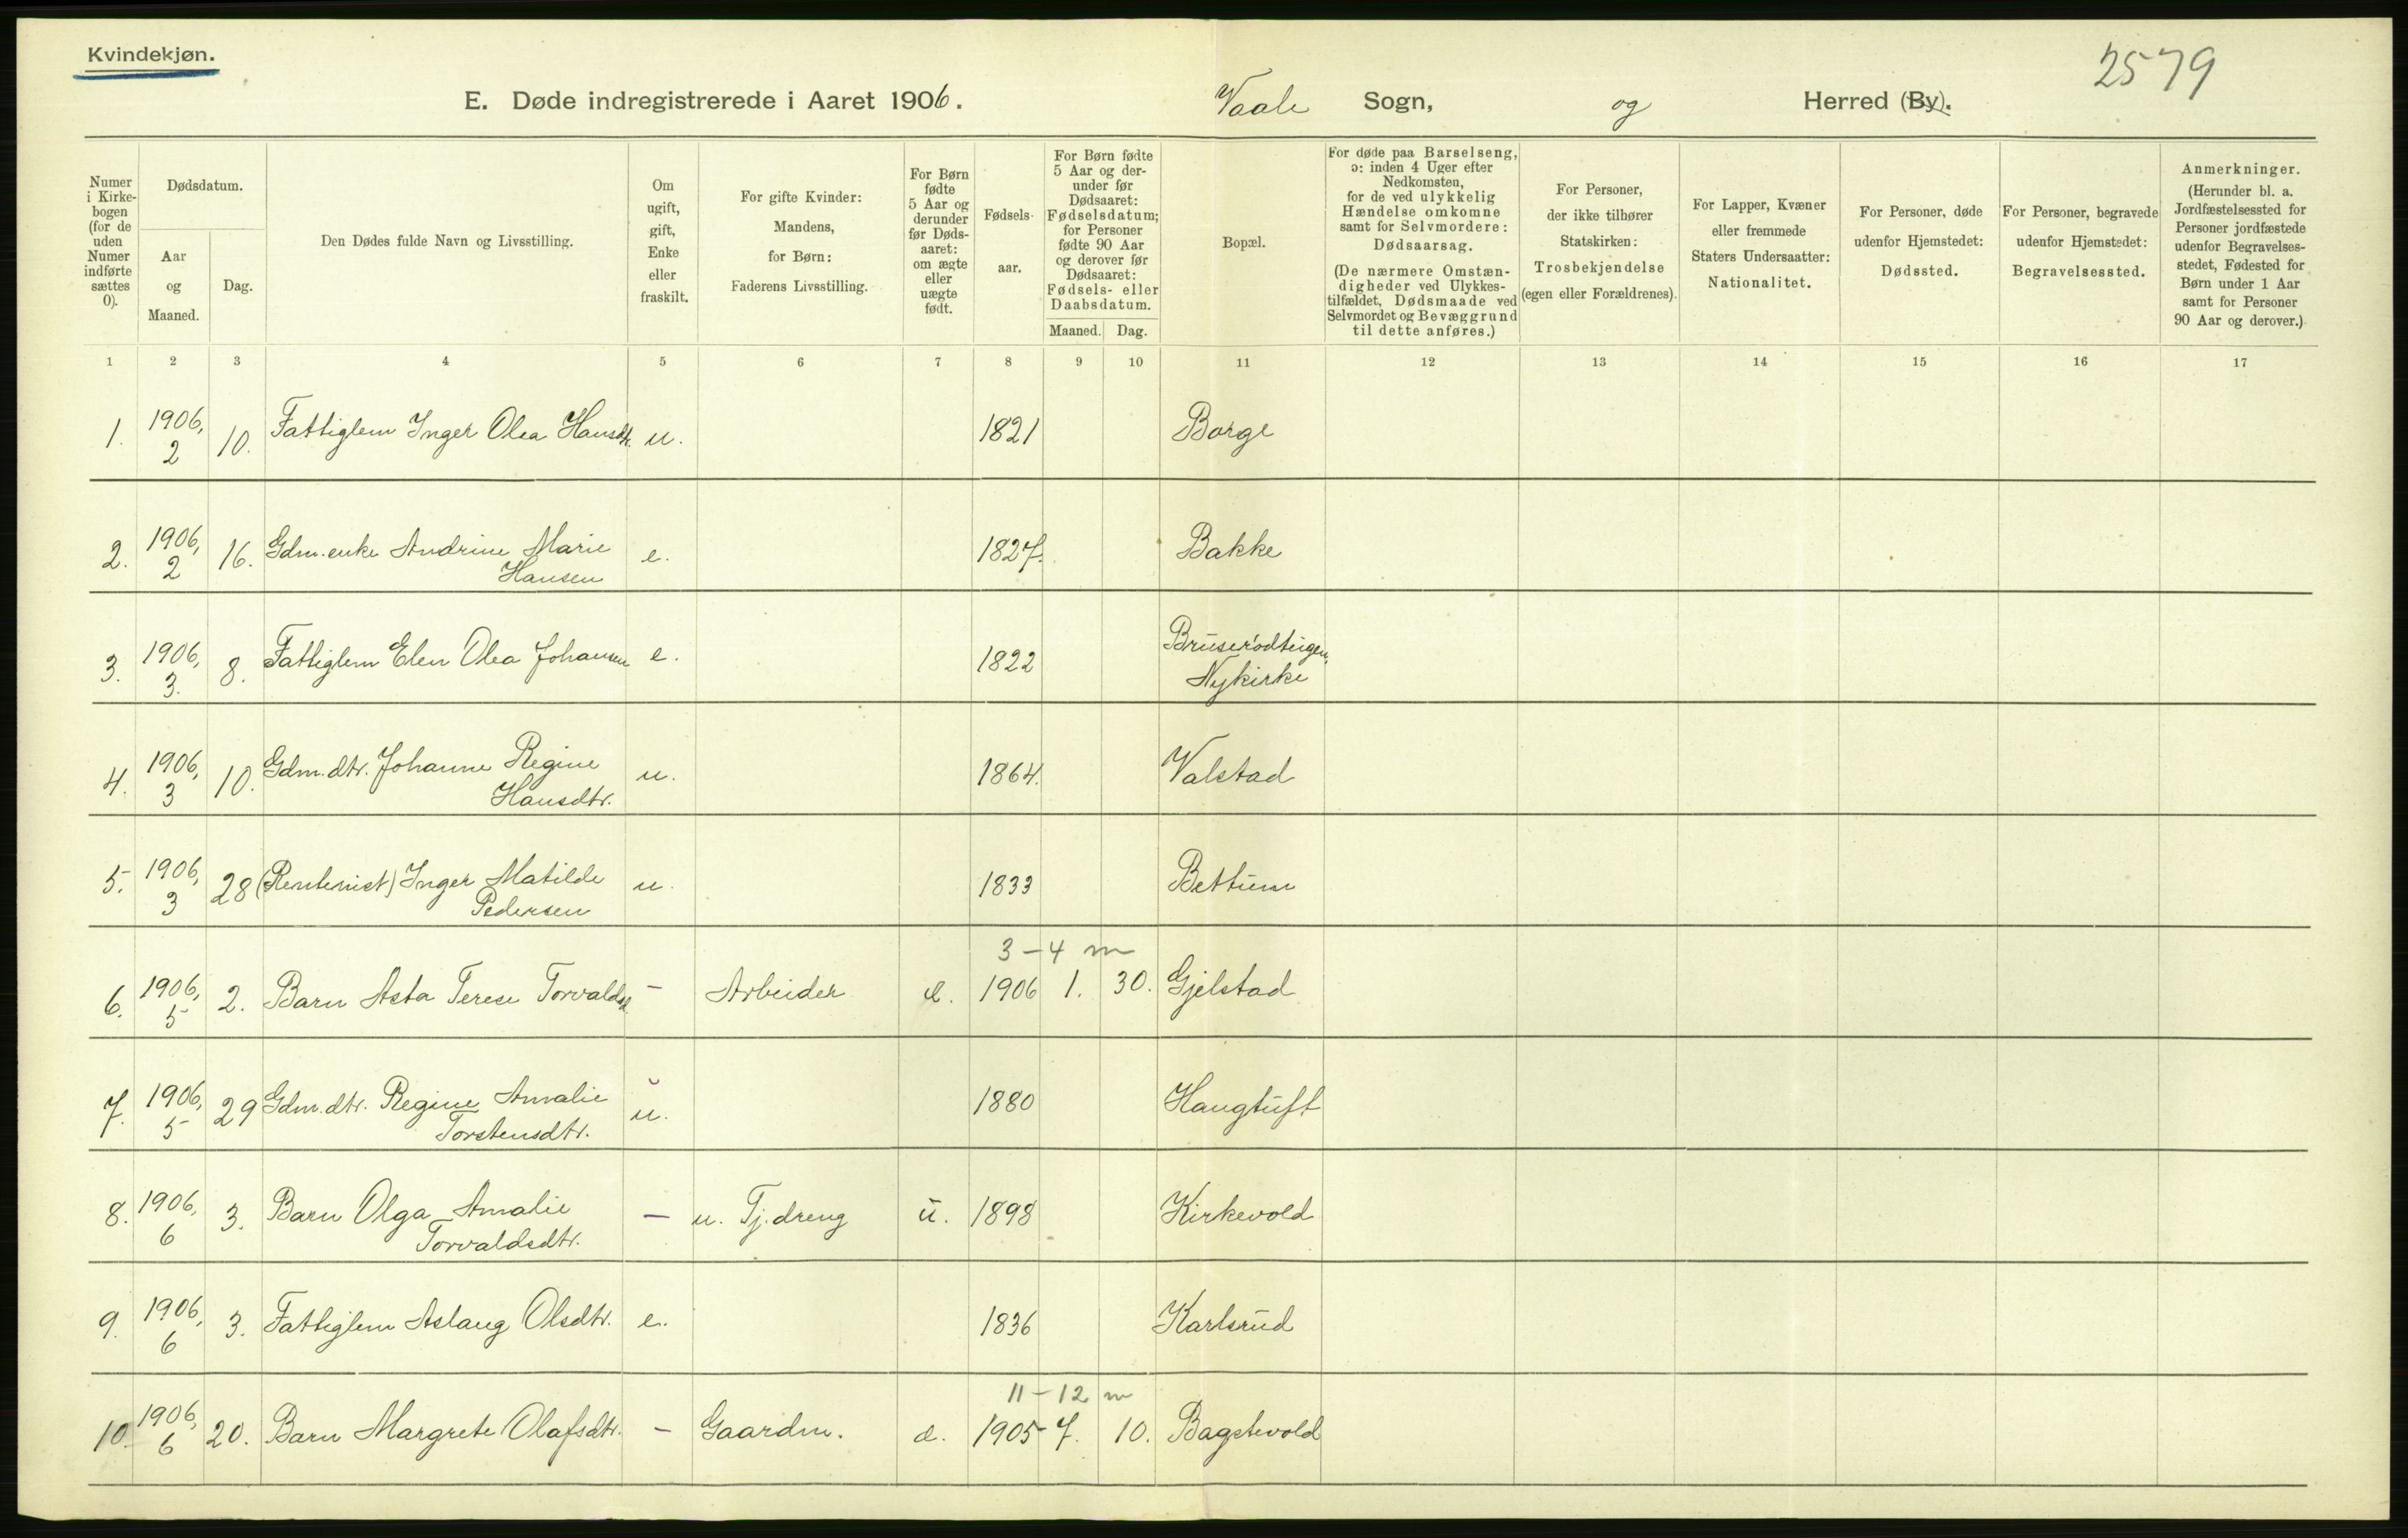 Kvindekjøn.
2579
E. Døde indregistrerede i Aaret 1906. Vaale Sogn, og Herred (By).
Numer i Kirkebogen (for de uden Numer indførte sættes 0).
Dødsdatum.
Aar og Maaned.
Dag.
Den Dødes fulde Navn og Livsstilling.
Om ugift, gift, Enke eller fraskilt.
For gifte Kvinder: Mandens, for Børn: Faderens Livsstilling.
For Børn fødte 5 Aar og derunder før Dødsaaret: om ægte eller uægte født.
Fødselsaar.
For Børn fødte 5 Aar og derunder før Dødsaaret: Fødselsdatum; for Personer fødte 90 Aar og derover før Dødsaaret: Fødsels- eller Daabsdatum.
Maaned. Dag.
Bopæl.
For døde paa Barselseng, ɔ: inden 4 Uger efter Nedkomsten, for de ved ulykkelig Hændelse omkomne samt for Selvmordere: Dødsaarsag.
(De nærmere Omstændigheder ved Ulykkestilfældet, Dødsmaade ved Selvmordet og Bevæggrund til dette anføres.)
For Personer, der ikke tilhører Statskirken: Trosbekjendelse (egen eller Forældrenes).
For Lapper, Kvæner eller fremmede Staters Undersaatter: Nationalitet.
For Personer, døde udenfor Hjemstedet: Dødssted.
For Personer, begravede udenfor Hjemstedet: Begravelsessted.
Anmerkninger.
(Herunder bl. a. Jordfæstelsessted for Personer jordfæstede udenfor Begravelsesstedet, Fødested for Børn under 1 Aar samt for Personer 90 Aar og derover.)
1 2 3 4 5 6 7 8 9 10 11 12 13 14 15 16 17
1. 1906, 2 10. Fattiglem Inger Olea Hansdt. u. 1821 Borge
2. 1906, 2 16. Gdm.enke Andrine Marie Hansen e. 1827. Bakke
3. 1906, 3. 8. Fattiglem Elen Olea Johansen e. 1822 Bruserødteigen, Nykirke
4. 1906, 3 10. Gdm.dtr. Johanne Regine Hansdtr. u. 1864. Valstad
5. 1906, 3 28 (Rentenist) Inger Matilde Pedersen u. 1833 Bettum
3-4 m
6. 1906, 5 2. Barn Asta Terese Torvaldsd. - Arbeider e. 1906 1. 30. Gjelstad
7. 1906, 5 29 Gdm.dtr. Regine Amalie Torstensdtr. u. 1880 Haugtuft
8. 1906, 6 3. Barn Olga Amalie Torvaldsdtr. - u. Tj.dreng u. 1898 Kirkevold
9. 1906, 6 3. Fattiglem Aslaug Olsdtr. e. 1836 Karlsrud
11-12 m
10. 1906, 6 20. Barn Margrete Olafsdtr. - Gaardm. e. 1905 7. 10. Bagstevold